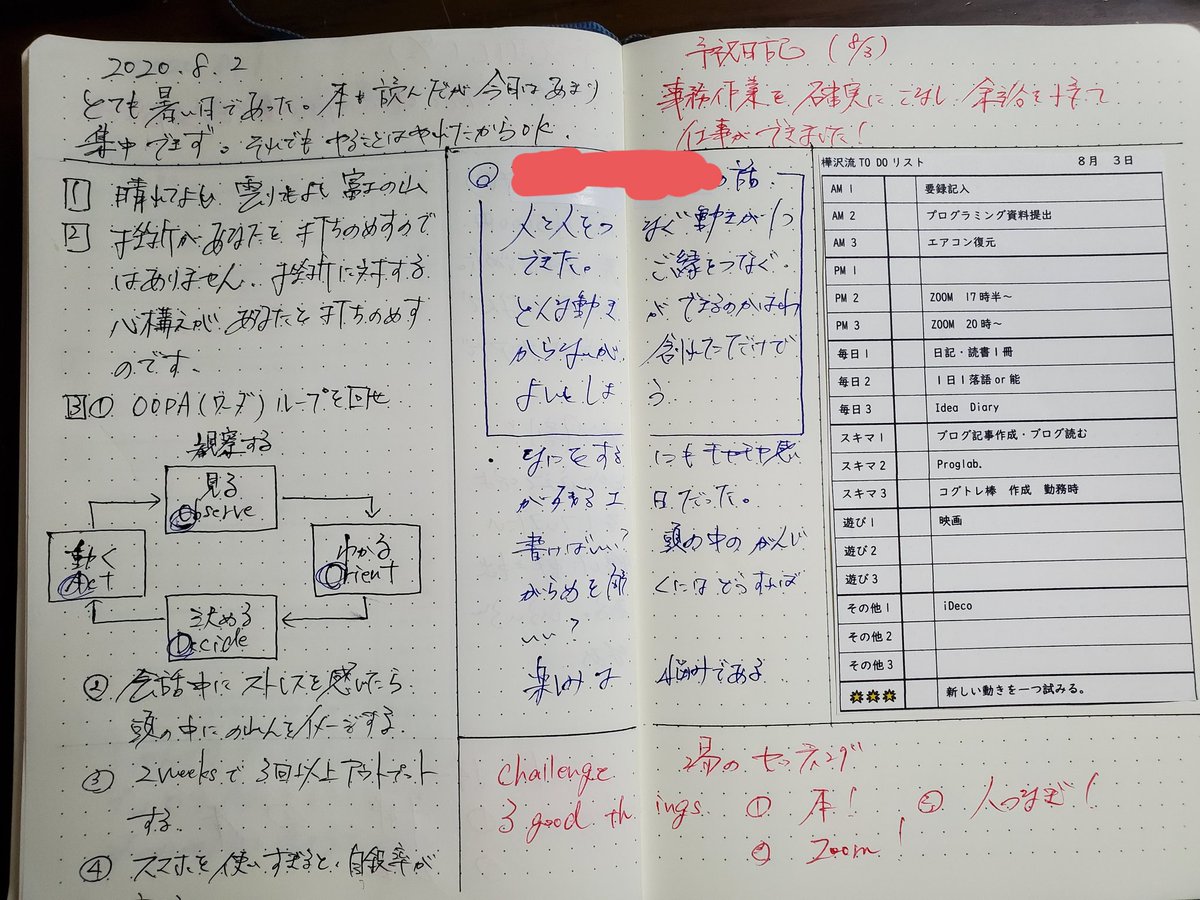 2020.8.2
とても暑い日であった。本も読んだが今日はあまり
集中できず。それでもやることはやれたからOK.
1 晴れてよし 曇りてもよし 富士の山
2 挫折があなたを打ちのめすので
はありません. 挫折に対する
心構えが あなたを打ちのめす
のです.
3 ① OODA(ウーダ)ループを回せ
観察する
見る
Observe
動く
Act
わかる
Orient
決める
Decide
② 会話中にストレスを感じたら
頭の中に山をイメージする.
③ 2weeksで3回以上アウトプット
する.
④ スマホを使いすぎると、自殺率が
の話
人と人をつなぐ動きが1つ
できた。ご縁をつなぐ.
どんな動きができるのかはわ
からないが
よしとしよう
なにをするにもモヤモヤ感
が残る1日だった。
書けばいい? 頭の中のがんじ
がらめを解くにはどうすれば
いい?
楽しみは 悩みである
challenge
3 good things
予祝日記(8/3)
事務作業を確実にこなし 余裕を持って
仕事ができました!
樺沢流TO DOリスト 8月 3日
AM 1 要録記入
AM 2 プログラミング資料提出
AM 3 エアコン復元
PM 1
PM 2 ZOOM 17時半～
PM 3 ZOOM 20時～
毎日1 日記・読書1冊
毎日2 1日1落語or能
毎日3 Idea Diary
スキマ1 ブログ記事作成・ブログ読む
スキマ2 Proglab.
スキマ3 コグトレ棒 作成 勤務時
遊び1 映画
遊び2
遊び3
その他1 iDeco
その他2
その他3
新しい動きを一つ試みる。
場のセッティング
① 本!
② Zoom!
③ 人つなぎ!